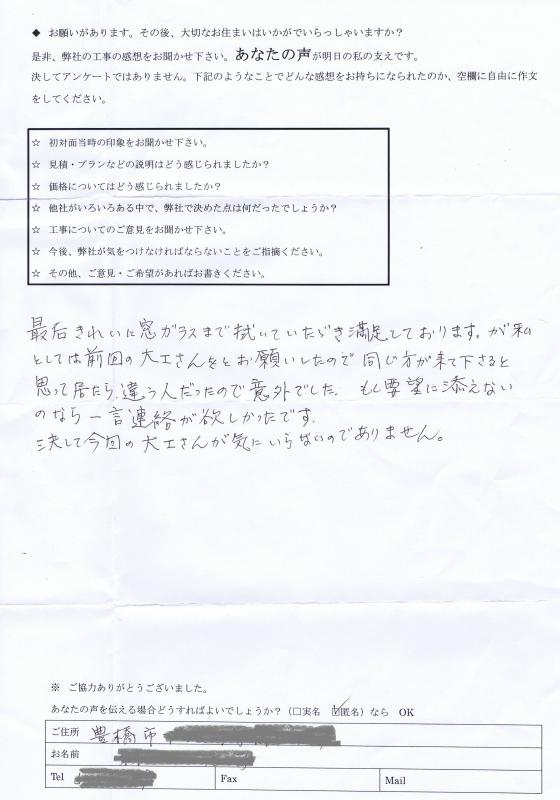 ◆ お願いがあります。その後、大切なお住まいはいかがでいらっしゃいますか？
是非、弊社の工事の感想をお聞かせ下さい。あなたの声が明日の私の支えです。
決してアンケートではありません。下記のようなことでどんな感想をお持ちになられたのか、空欄に自由に作文
をしてください。
☆ 初対面当時の印象をお聞かせ下さい。
☆ 見積・プランなどの説明はどう感じられましたか？
☆ 価格についてはどう感じられましたか？
☆ 他社がいろいろある中で、弊社で決めた点は何だったでしょうか？
☆ 工事についてのご意見をお聞かせ下さい。
☆ 今後、弊社が気をつけなければならないことをご指摘ください。
☆ その他、ご意見・ご希望があればお書きください。
最后きれいに窓ガラスまで拭いていただき満足しております。が私
としては前回の大工さんをとお願いしたので同じ方が来て下さると
思って居たら、違う人だったので意外でした。もし要望に添えない
のなら一言連絡が欲しかったです.
決して今回の大工さんが気にいらないのでありません。
※ ご協力ありがとうございました。
あなたの声を伝える場合どうすればよいでしょうか？（□実名 ☑匿名）なら OK
ご住所 豊橋市
お名前
Tel Fax Mail